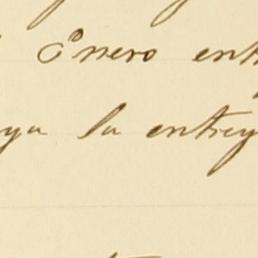 Enero ent
ya la entrey